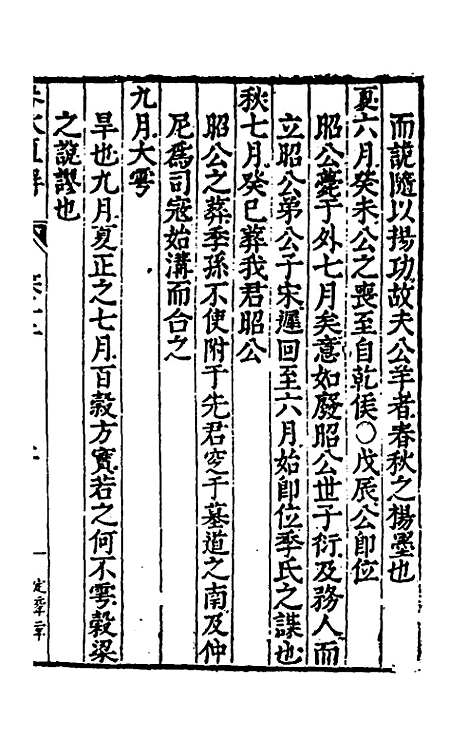 而詭隨以揚功故夫公羊者春秋之楊墨也
夏六月癸未公之喪至自乾侯○戊辰公即位
昭公薨于外七月矣意如廢昭公世子衍及務人而
立昭公弟公子宋遲回至六月始即位季氏之謀也
秋七月癸巳葬我君昭公
昭公之葬季孫不使附于先君窆于墓道之南及仲
尼爲司寇始溝而合之
九月大雩
旱也九月夏正之七月百穀方實若之何不雩穀梁
之說謬也
定公元年